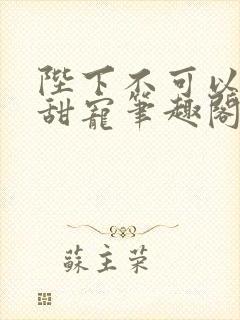 陛下不可以
甜寵筆趣閣
蘇主荣